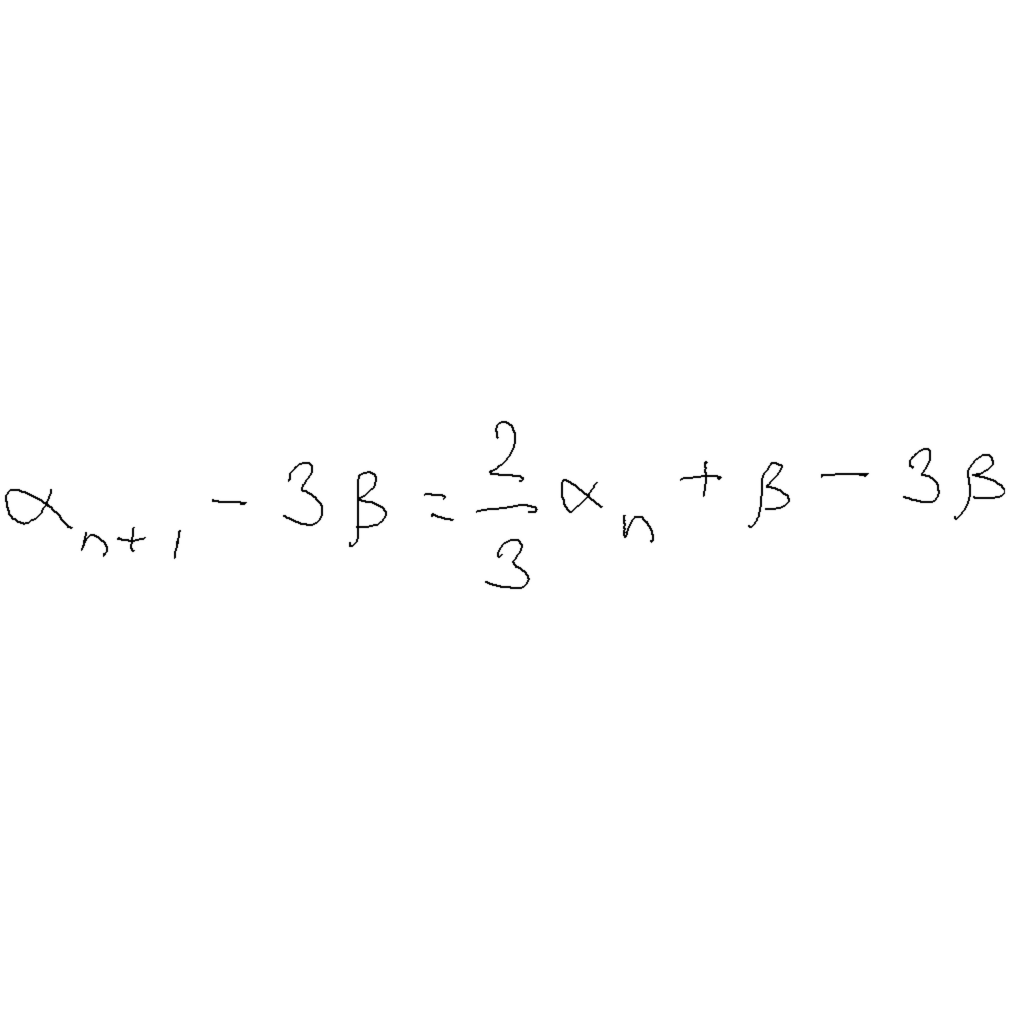 \alpha_{n+1} - 3\beta = \frac{2}{3}\alpha_n + \beta - 3\beta